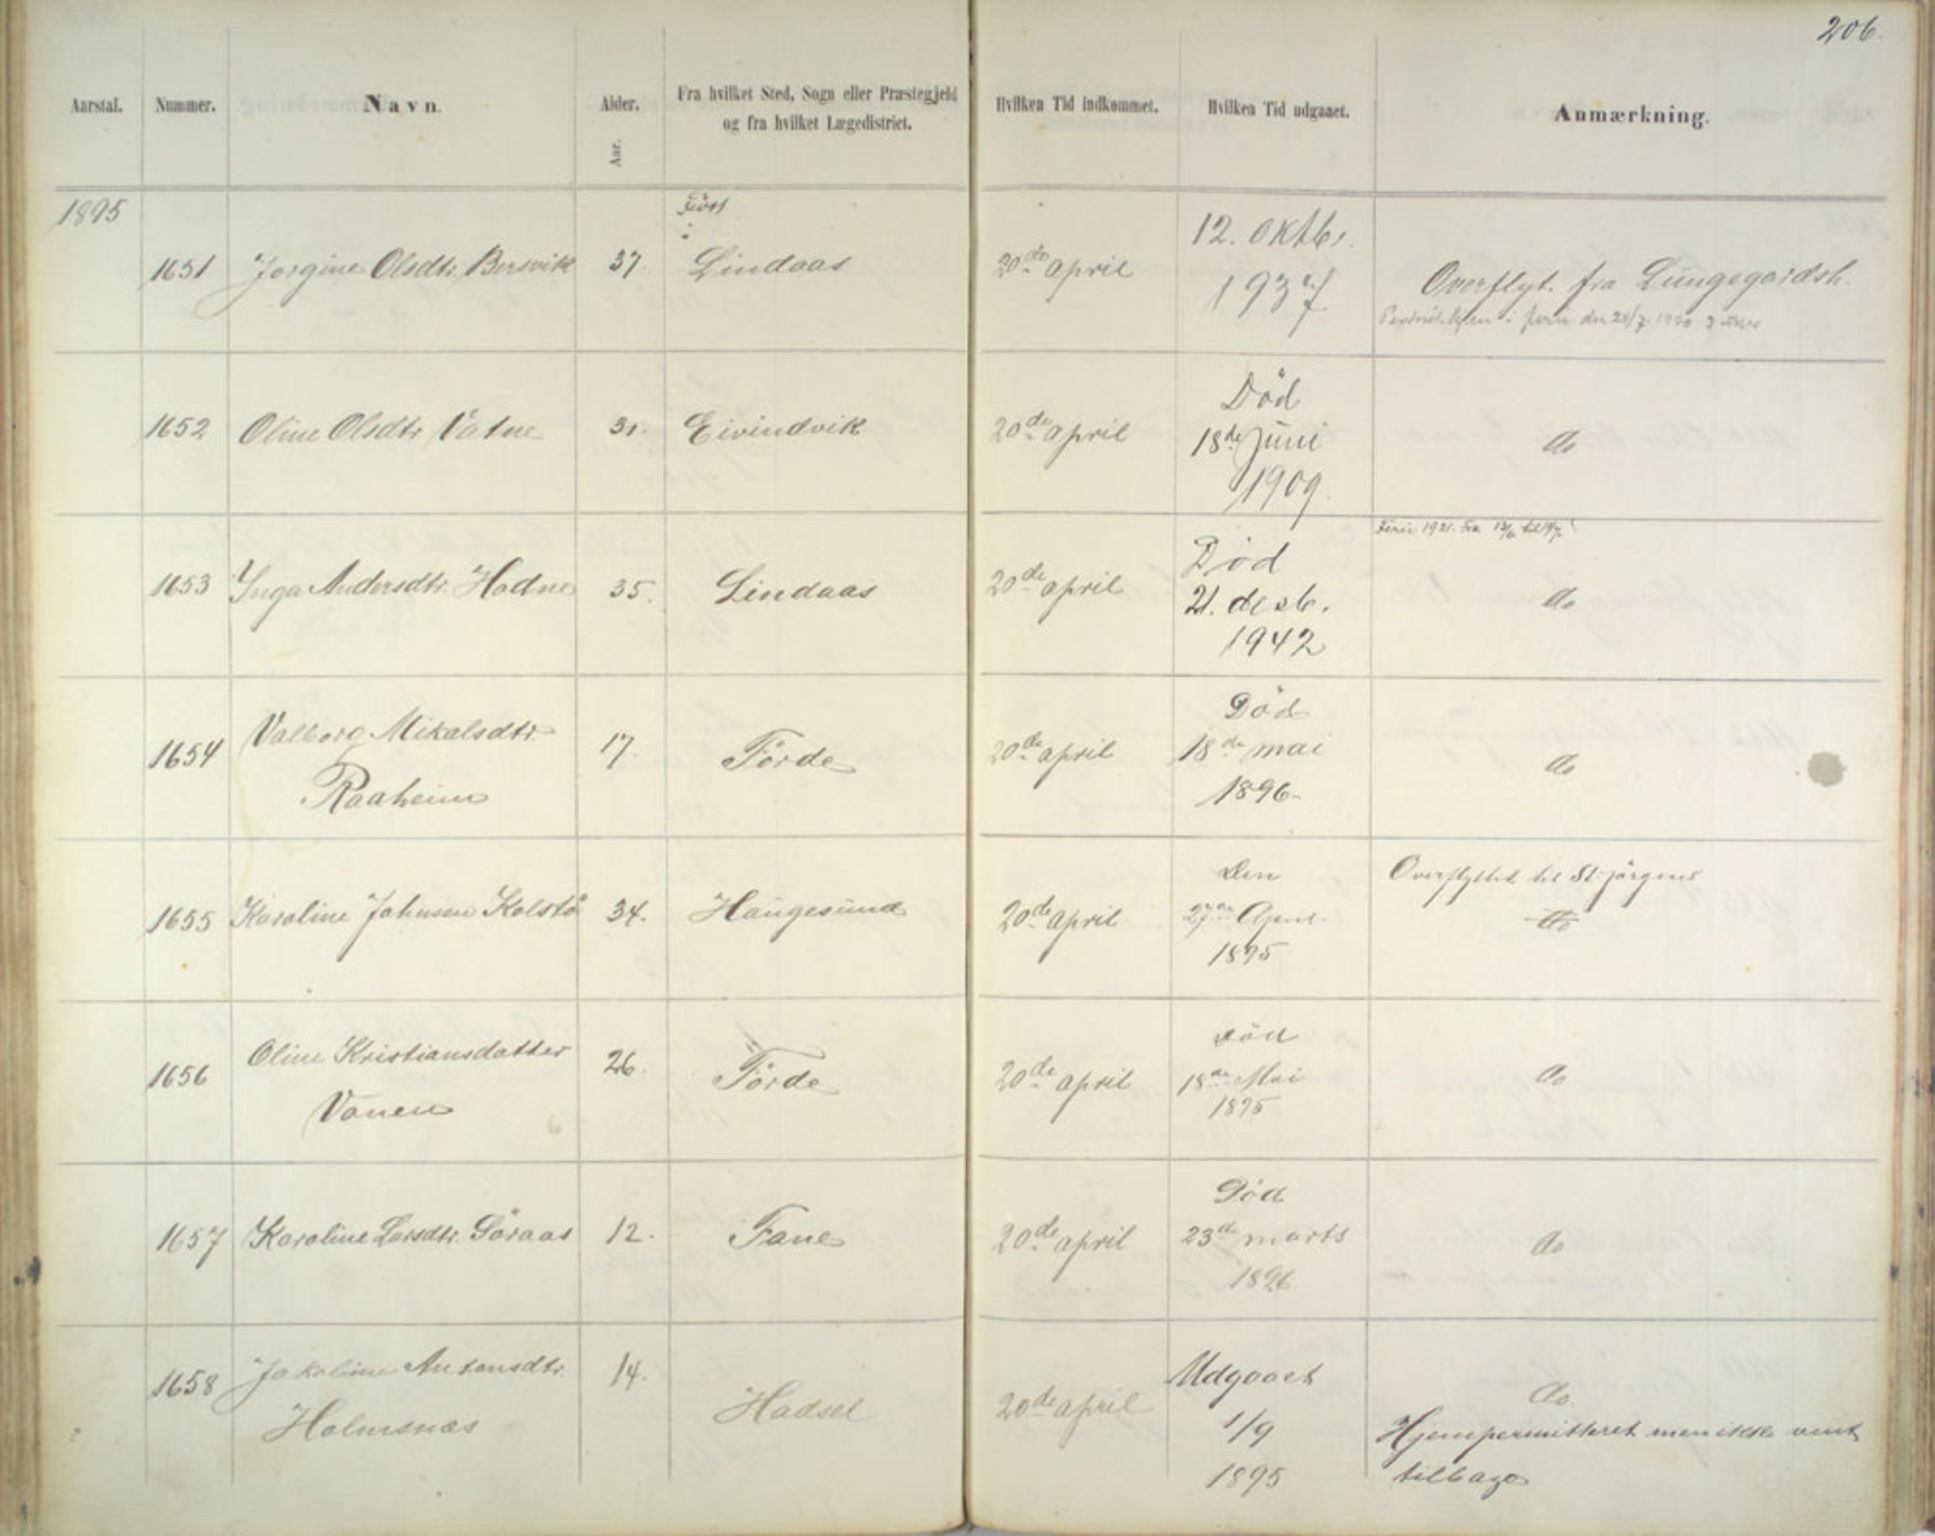 206.
Aarstal. Nummer. Navn. Alder. Fra hvilket Sted, Sogn eller Præstegjeld Hvilken Tid indkommet. Hvilken Tid udgaaet. Anmærkning.
Aar. og fra hvilket Lægedistrict.
1895
12. oktbr.
1651 Jorgine Olsdtr. Bersvik 37 Lindaas 20de april
1937 Overflyt. fra Lungegaardsh.
i ferie den 24/7 1920
Död
1652 Oline Olsdtr. Vatne 31. Eivindvik 20de april 18de Juni do
1909.
Ferie 1921. fra
Död
1653 Inga Andersdtr. Hodne 35. Lindaas 20de april 21. desb. do
1942
Död
Valborg Mikalsdtr.
1654 17. Förde 20de april 18de mai do
Raaheim 1896-
Den Overflyttet til St. jörgens
1655 Karoline Johnsen Kolstö 34. Haugesund 20de april 27de April. do
1895
Död
Oline Kristiansdatter
1656 26. Förde 20de april 18de Mai do
Vonen 1895
Död
1657 Karoline Larsdtr. Söraas 12. Fane 20de april 23de marts do
1896
Jakobine Antonsdtr. 14. Udgaaet
1658 Hadsel 20de april do.
Holmsnæs 1/9 Hjempermitteret men ikke vent
1895 tilbage